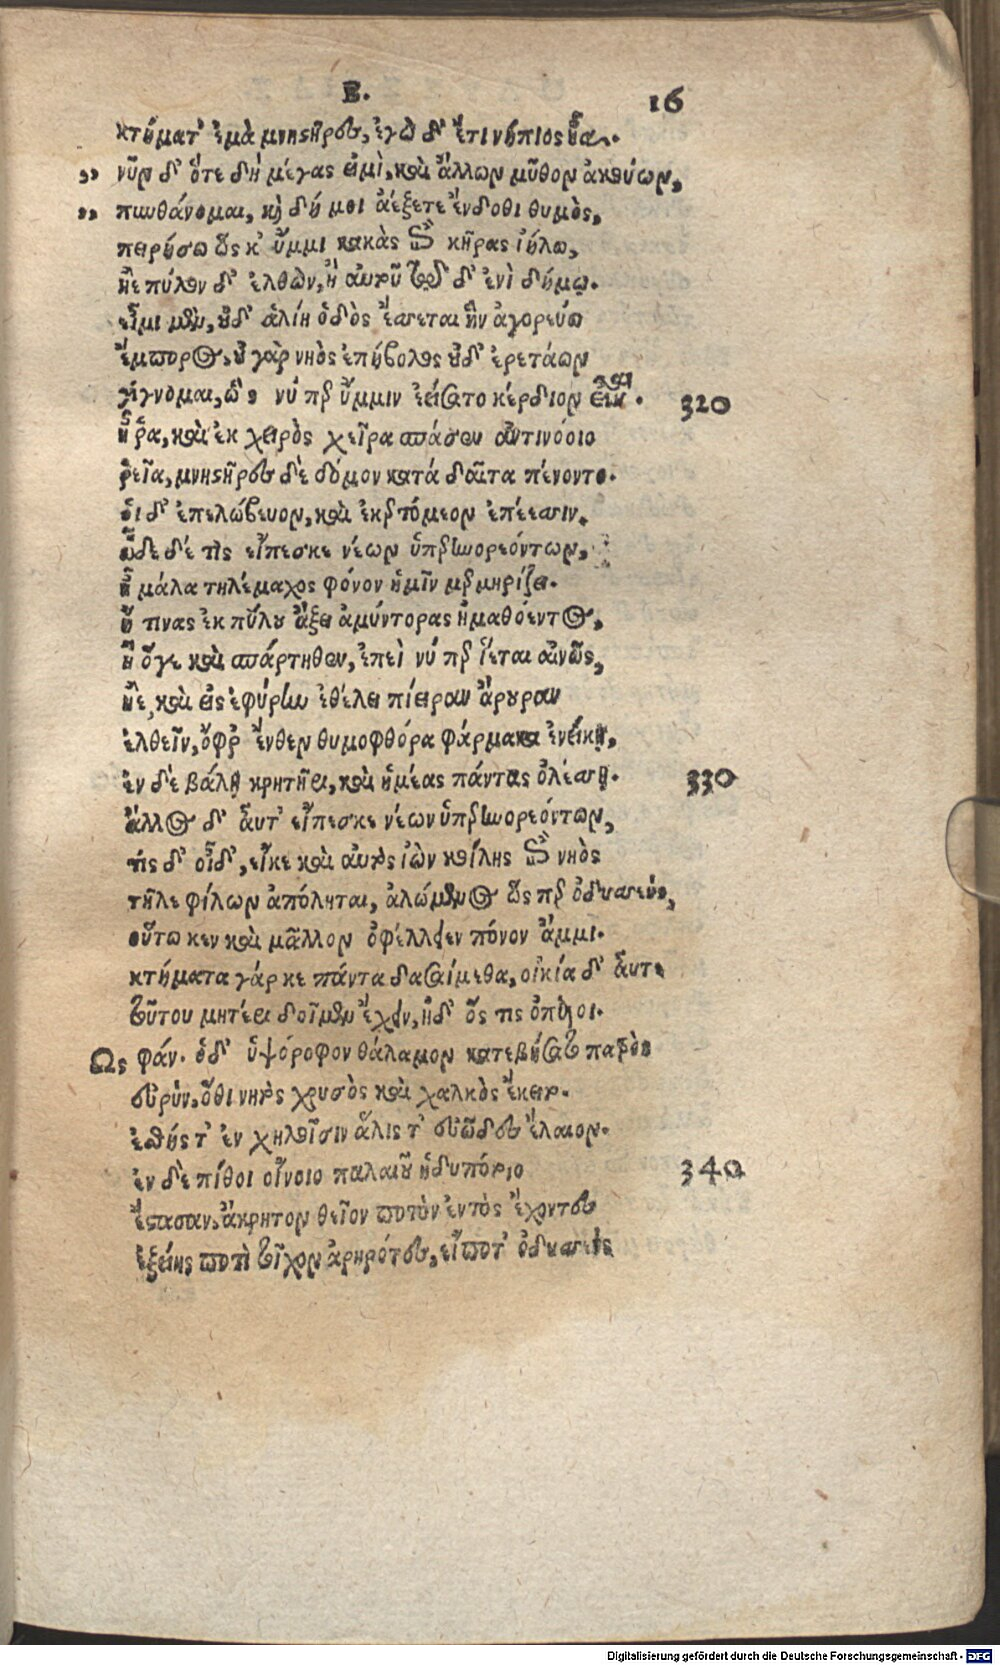 Β.
16
κτήματ' ἐμὰ μνηστῆρες, ἐγὼ δ' ἔτι νήπιος ἦα,.
,, νῦν δ' ὅτε δὴ μέγας εἰμὶ, καὶ ἄλλων μῦθον ἀκούων,
,, πυνθάνομαι, καὶ δή μοι ἀέξετε ἔνδοθι θυμὸς,
πειρήσω ὥς κ' ὔμμι κακὰς ἐπὶ κῆρας ἰήλω,
ἠὲ πύλον δ' ἐλθὼν, ἢ αὐτοῦ τῷδ' ἐνὶ δήμῳ.
εἶμι μὲν, οὐδ' ἁλίη ὁδὸς ἔσσεται ἣν ἀγορεύω
ἔμπορος, οὐ γὰρ νηὸς ἐπήβολος οὐδ' ἐρετάων
γίγνομαι, ὥς νύ περ ὔμμιν ἐείσατο κέρδιον εἶναι.
320
ἦ ῥα, καὶ ἐκ χειρὸς χεῖρα σπάσεν ἀντινόοιο
ῥεῖα, μνηστῆρες δὲ δόμον κατά δαῖτα πένοντο.
οἱ δ' ἐπελώβευον, καὶ ἐκερτόμεον ἐπέεσσιν.
ὧδε δέ τις εἴπεσκε νέων ὑπερηνορεόντων,
ἦ μάλα τηλέμαχος φόνον ἡμῖν μερμηρίζει.
ἤ τινας ἐκ πύλου ἄξει ἀμύντορας ἠμαθόεντος,
ἢ ὅγε καὶ σπάρτηθεν, ἐπεὶ νύ περ ἵεται αἰνῶς,
ἠὲ, καὶ εἰς ἐφύρην ἐθέλει πίειραν ἄρουραν
ἐλθεῖν, ὄφρ' ἔνθεν θυμοφθόρα φάρμακα ἐνείκῃ,
ἐν δὲ βάλῃ κρητῆρι, καὶ ἡμέας πάντας ὀλέσσῃ.
330
ἄλλος δ' αὖτ' εἴπεσκε νέων ὑπερηνορεόντων,
τίς δ' οἶδ', εἴκε καὶ αὐτὸς ἰὼν κοίλης ἐπὶ νηὸς
τῆλε φίλων ἀπόληται, ἀλώμενος ὥς περ ὀδυσσεύς,
οὕτω κεν καὶ μᾶλλον ὀφέλλειεν πόνον ἄμμι.
κτήματα γάρ κε πάντα δασαίμεθα, οἰκία δ' αὖτε
τούτου μητέρι δοῖμεν ἔχειν, ἠδ' ὅς τις ὀπυίοι.
Ως φάν. ὁ δ' ὑψόροφον θάλαμον κατεβήσατο πατρὸς
εὐρὺν, ὅθι νητὸς χρυσὸς καὶ χαλκὸς ἔκειτο.
ἐσθής τ' ἐν χηλοῖσιν ἅλις τ' εὐῶδες ἔλαιον.
ἐν δὲ πίθοι οἴνοιο παλαιοῦ ἡδυπότοιο
340
ἕστασαν, ἄκρητον θεῖον ποτὸν ἐντὸς ἔχοντες
ἑξείης ποτὶ τοῖχον ἀρηρότες, εἴποτ' ὀδυσσεὺς
Digitalisierung gefördert durch die Deutsche Forschungsgemeinschaft - DFG